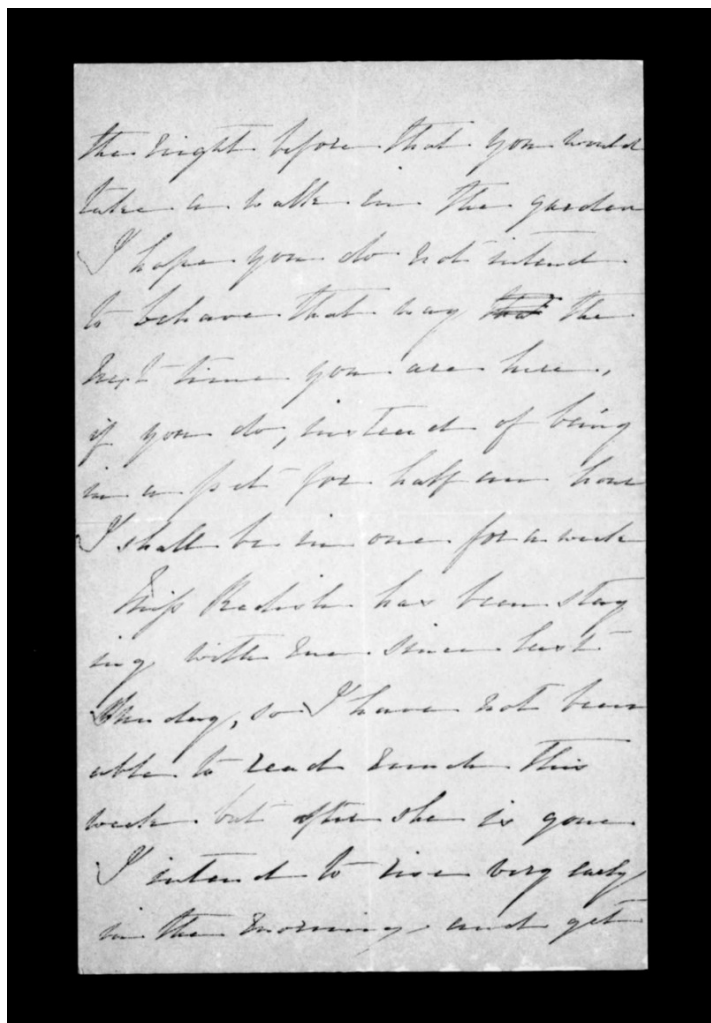 the night before that you would
take a walk in the garden
I hope you do not intend
to behave that way the
next time you are here,
if you do, instead of being
in a pet for half an hour
I shall be in one for a week
Miss has been stay
ing with me since last
day, so I have not been
able to read much this
week but after she is gone
I intend to rise very early
in the morning and get